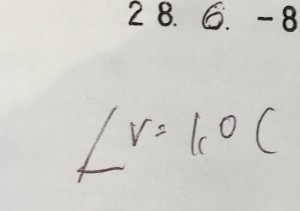 28. 6. -8
∠v = 1.0 (